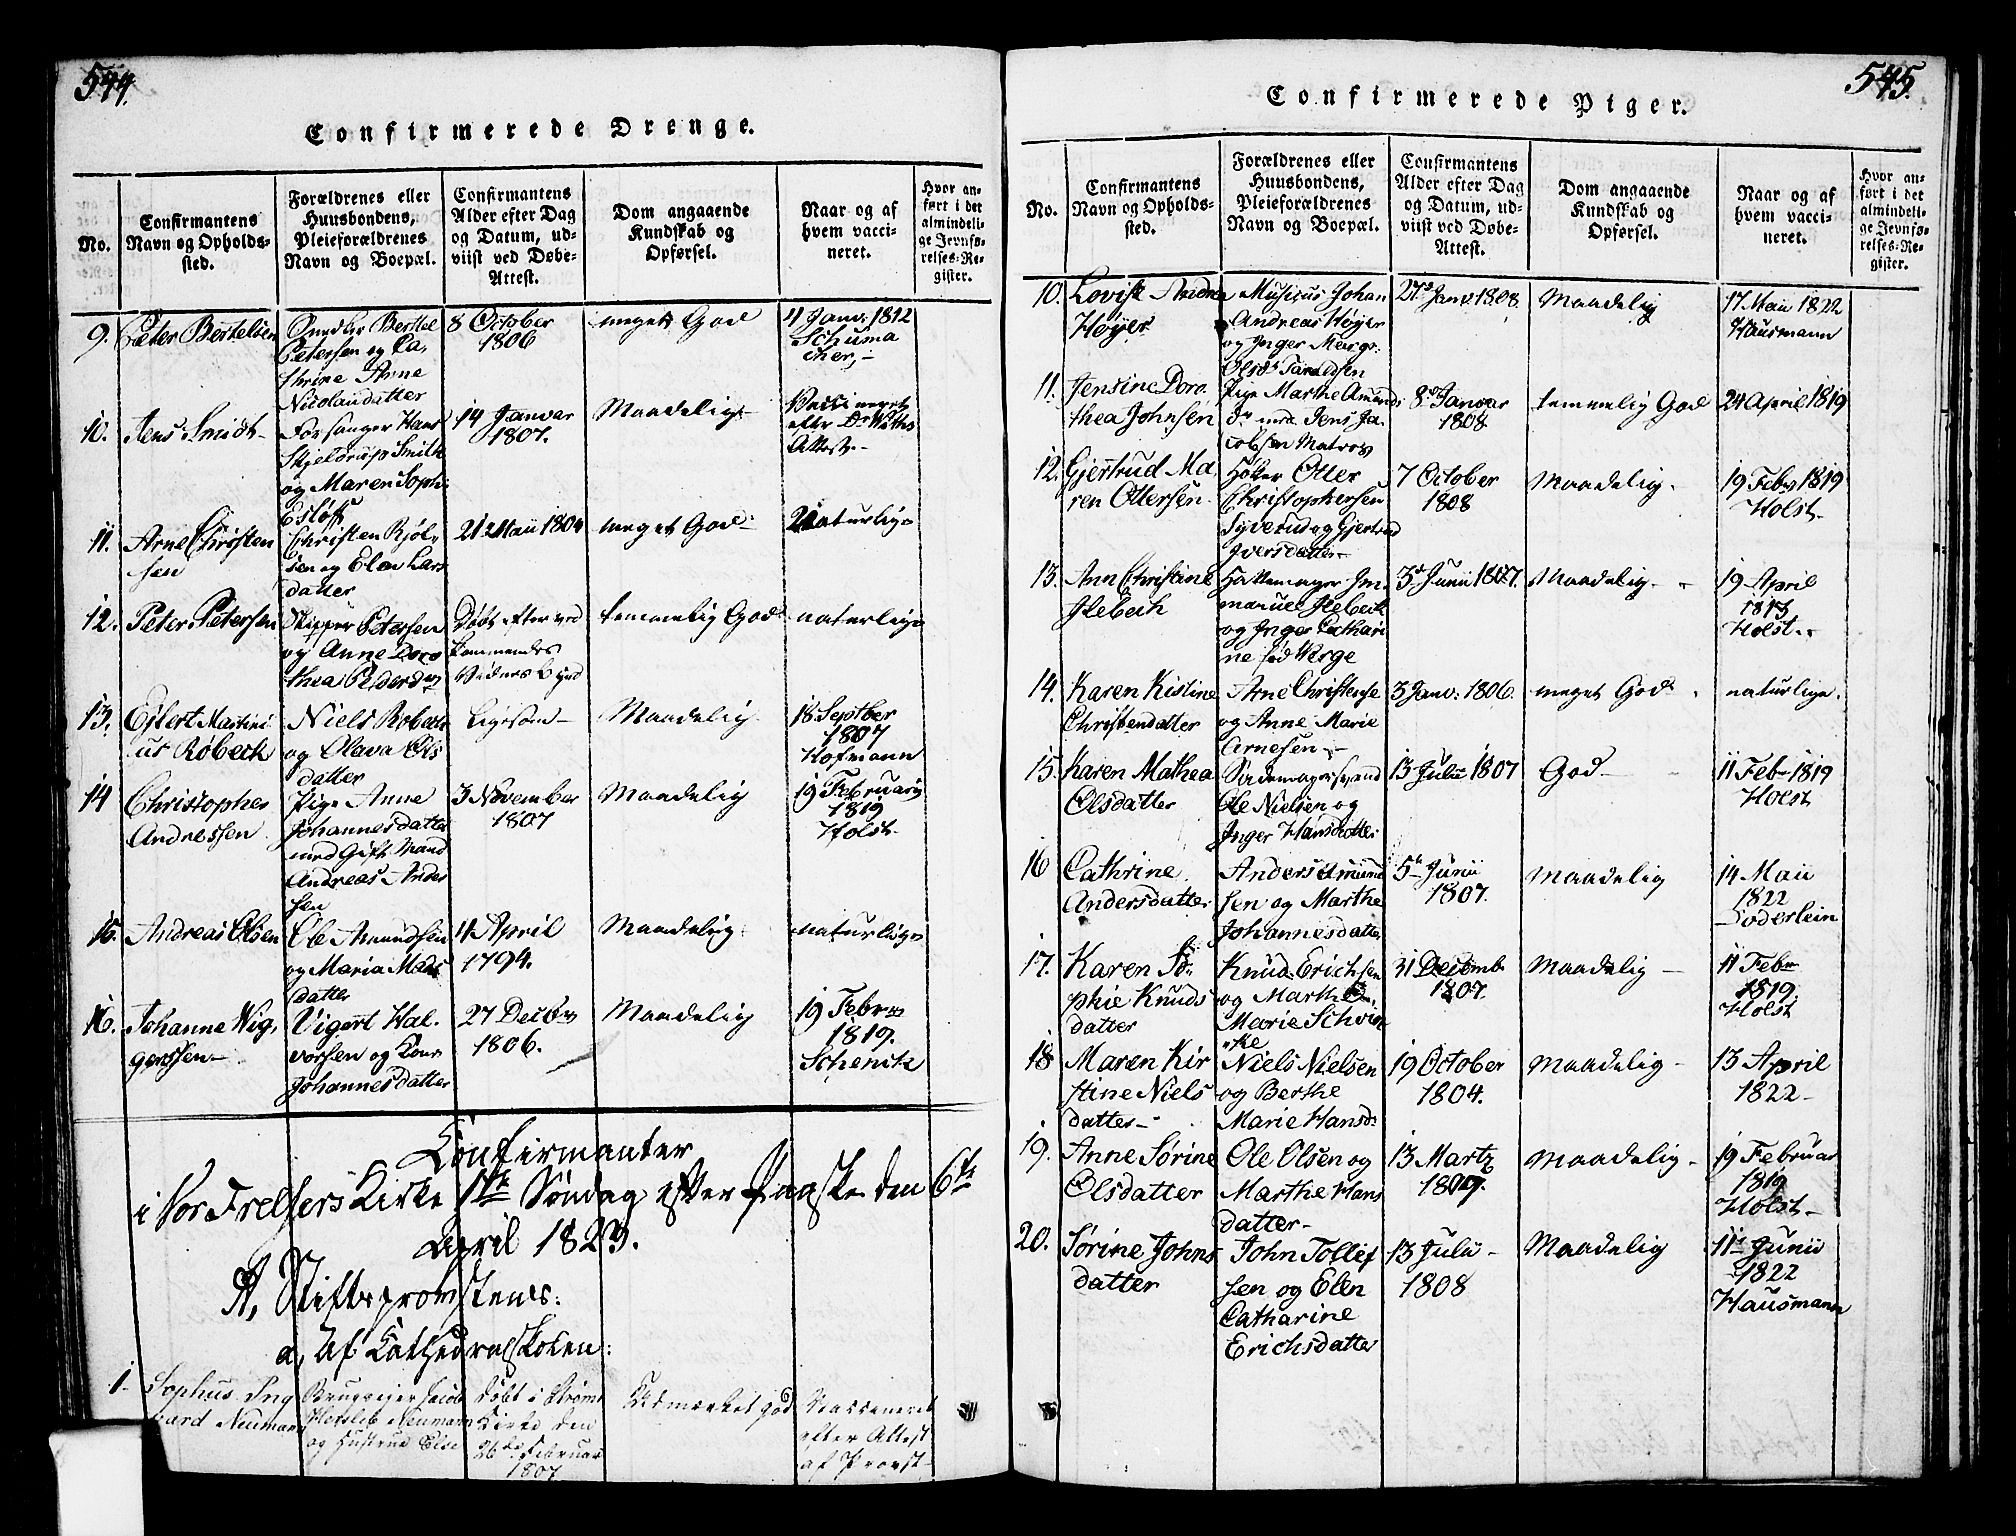 544.
Confirmerede Drenge.
No.
Confirmantens
Navn og Opholds-
sted.
Forældrenes eller
Huusbondens,
Pleieforældrenes
Navn og Boepæl.
Confirmantens
Alder efter Dag
og Datum, ud-
viist ved Døbe-
Attest.
Dom angaaende
Kundskab og
Opførsel.
Naar og af
hvem vacci-
neret.
Hvor an-
ført i det
almindeli-
ge Jevnfø-
relses-Re-
gister.
9.
Peter Bertelsen
Berthel
Petersen og Ca-
thrine Anne
Nicolaidatter
8 October
1806
meget God
11 Janv: 1812
Schuma
cher,-
10.
Jens Smidt-
Forsanger Hans
Skjelderup Smith
og Maren Soph:
14 Januar
1807.
Maadelig-
Vaccineret
efter Dr
Attest-
11.
Arne Christen
sen
Christen
sen og Elen Lars
datter
21 Maii 1804
meget God
naturlige
12.
Peter Petersen
Skipper Petersen
og Anne Doro
thea Pedersd
Døbt efter ved
kommendes
temmelig God
naturlige
13.
Eilert Martini
us Røbech
Niels Robech
og Olava Ols
datter
Ligesom-
Maadelig.
18 Septber
1807
Hofmann
14
Christopher
Andressen
Pige Anne
Johannesdatter
med Gift Mand
Andreas Ander
sen
3 November
1807
Maadelig
19 Februarij
1819
Holst.
15.
Andreas Olsen
Ole Amundsen
og Maria Mads
datter
11 April
1794.
Maadelig
naturlige
16.
Johanne Wig,
gerssen-
Vigert Hal-
vorsen og
Johannesdatter
27 Decbr
1806.
Maadelig
19 Febr
1819.
Schenck
Confirmanter
i Vor Frelsers Kirke 1te Søndag efter Paaske den 6te
April 1823.
A, Stiftsprovstens:
a, Af Cathedralskolen:
1.
Sophus Ing
vard Neumann
Brugseier Jacob
Herslib Neumann
og Hustrue Else
Døbt i Strøms
Kirke den
26de Februar
1807
Udmærket god
Vaccineret
efter Attest
af Provst-
545.
Confirmerede Piger.
No.
Confirmantens
Navn og Opholds-
sted.
Forældrenes eller
Huusbondens,
Pleieforældrenes
Navn og Boepæl.
Confirmantens
Alder efter Dag
og Datum, ud-
viist ved Døbe-
Attest.
Dom angaaende
Kundskab og
Opførsel.
Naar og af
hvem vacci-
neret.
Hvor an-
ført i det
almindeli-
ge Jevnfø-
relses-Re-
gister.
10.
Lovise Andrea
Høyer
Musicus Johan
Andreas Høyer
og Inger Margr:
27 Janv 1808.
Maadelig
17 Maii 1822
Hausmann
11.
Jensine Doro,
thea Johnsen
Pige Marthe Amunds
dr med Jens Ja
cobsen Matros
8de Januar
1808
temmelig God
24 April 1819
12.
Gjertrud Ma,
ren Ottersen
Høker Otter
Christophersen
Syverud og Gjertrud
Iversdatter-
7 October
1808
Maadelig.
19 Febr 1819
Holst-
13.
Ann Christine
Ilebech
Hattemager Im
manuel Ilebech
og Inger Cathari
ne fød Werge
3de Junii 1807.
Maadelig.
19 April
1813
Holst.
14.
Karen Kistine
Christensdatter
Arne Christense
og Anne Marie
Arnesen.-
3 Janv: 1806.
meget God.
naturlige.
15.
Karen Mathea
Olsdatter
Sadelmagersvend
Ole Nielsen og
Inger Hansdatter
13 Julii 1807
God-
11 Febr 1819
Holst
16
Cathrine
Andersdatter
Anders Amund
sen og Marthe
Johannesdatter
5te Junii
1807.
Maadelig
14 Maii
1822
Soderlein
17.
Karen So
phie Knuds
datter
Knud Erichsen
og Marthe
Marie Schvin
ske
31 Decemb
1807.
Maadelig-
11 Febr
1819.
Holst
18
Maren Kir
stine Niels
datter-
Niels Nielsen
og Berthe
Marie Hansd:
19 October
1804.
Maadelig-
13 April
1822-
19.
Anne Sørine
Olsdatter
Ole Olsen og
Marthe Hans
datter-
13 Martz
1809.
Maadelig-
19 Februar
1819
Holst-
20.
Sørine Johns
datter
John Tollef
sen og Elen
Catharine
Erichsdatter
13 Julii-
1808
Maadelig
11 Junii
1822
Hausmann